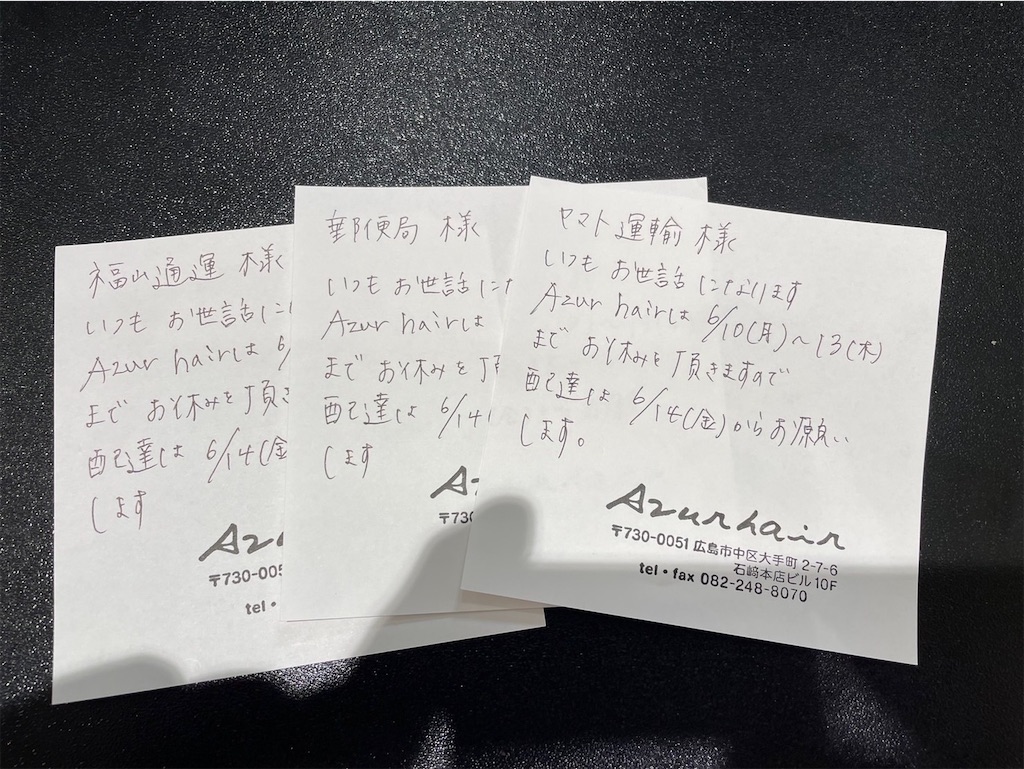 福山通運 様
いつも お世話に
Azur hairは 6/
まで お休みを頂き
配達は 6/14(金
します
Azu
〒730-005
tel・
郵便局 様
いつも お世話に
Azur hairは
まで お休みを頂
配達は 6/14(
します
A
〒730
ヤマト運輸 様
いつも お世話になります
Azur hairは 6/10(月)〜13(木)
まで お休みを頂きますので
配達は 6/14(金)からお願い
します。
Azur hair
〒730-0051 広島市中区大手町 2-7-6
石﨑本店ビル 10F
tel・fax 082-248-8070